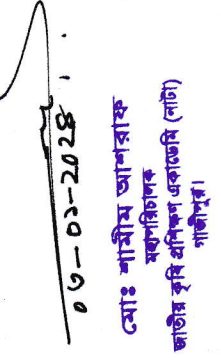 ০৩-০১-২০২৪
মোঃ শামীম আশরাফ
মহাপরিচালক
জাতীয় কৃষি প্রশিক্ষণ একাডেমি (নাটা)
গাজীপুর।